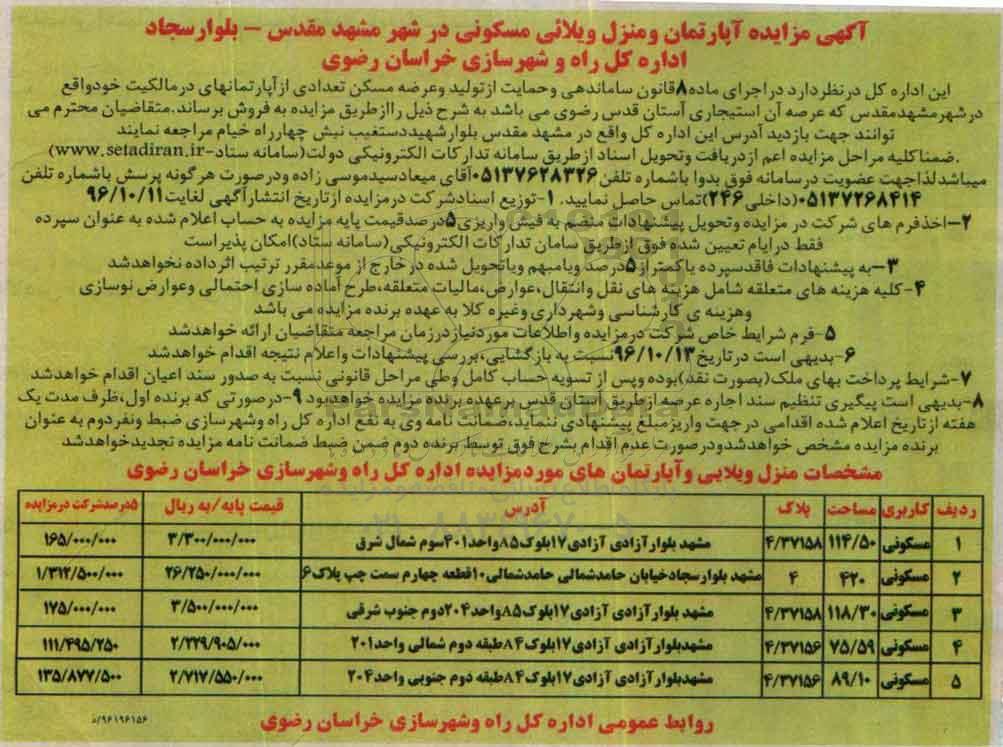 آگهی مزایده آپارتمان ومنزل ویلائی مسکونی در شهر مشهد مقدس – بلوارسجاد
اداره کل راه و شهرسازی خراسان رضوی
این اداره کل درنظردارد دراجرای ماده۸قانون ساماندهی وحمایت ازتولیدوعرضه مسکن تعدادی ازآپارتمانهای درمالکیت خودواقع
درشهرمشهدمقدس که عرصه آن استیجاری آستان قدس رضوی می باشد به شرح ذیل راازطریق مزایده به فروش برساند.متقاضیان محترم می
توانند جهت بازدید آدرس این اداره کل واقع در مشهد مقدس بلوارشهیددستغیب نبش چهارراه خیام مراجعه نمایند
.ضمناکلیه مراحل مزایده اعم ازدریافت وتحویل اسناد ازطریق سامانه تدارکات الکترونیکی دولت(سامانه ستاد-www.setadiran.ir)
میباشدلذاجهت عضویت درسامانه فوق بدوا باشماره تلفن ۰۵۱۳۷۶۲۸۳۲۶آقای میعادسیدموسی زاده ودرصورت هرگونه پرسش باشماره تلفن
۰۵۱۳۷۲۶۸۴۱۴(داخلی۲۴۶)تماس حاصل نمایید. ۱-توزیع اسنادشرکت درمزایده ازتاریخ انتشارآگهی لغایت۹۶/۱۰/۱۱
۲–اخذفرم های شرکت در مزایده وتحویل پیشنهادات منضم به فیش واریزی۵درصدقیمت پایه مزایده به حساب اعلام شده به عنوان سپرده
فقط درایام تعیین شده فوق ازطریق سامان تدارکات الکترونیکی(سامانه ستاد)امکان پذیراست
۳–به پیشنهادات فاقدسپرده یاکمتراز۵درصد ویامبهم ویاتحویل شده درخارج از موعدمقرر ترتیب اثرداده نخواهدشد
۴-کلیه هزینه های متعلقه شامل هزینه های نقل وانتقال،عوارض،مالیات متعلقه،طرح آماده سازی احتمالی وعوارض نوسازی
وهزینه ی کارشناسی وشهرداری وغیره کلا به عهده برنده مزایده می باشد
۵-فرم شرایط خاص شرکت درمزایده واطلاعات موردنیازدرزمان مراجعه متقاضیان ارائه خواهدشد
۶-بدیهی است درتاریخ۹۶/۱۰/۱۳نسبت به بازگشایی،بررسی پیشنهادات واعلام نتیجه اقدام خواهدشد
۷-شرایط پرداخت بهای ملک(بصورت نقد)بوده وپس از تسویه حساب کامل وطی مراحل قانونی نسبت به صدور سند اعیان اقدام خواهدشد
۸-بدیهی است پیگیری تنظیم سند اجاره عرصه ازطریق آستان قدس برعهده برنده مزایده خواهدبود ۹-درصورتی که برنده اول،ظرف مدت یک
هفته ازتاریخ اعلام شده اقدامی درجهت واریزمبلغ پیشنهادی ننماید،ضمانت نامه وی به نفع اداره کل راه وشهرسازی ضبط ونفردوم به عنوان
برنده مزایده مشخص خواهدشدودرصورت عدم اقدام بشرح فوق توسط برنده دوم ضمن ضبط ضمانت نامه مزایده تجدیدخواهدشد
مشخصات منزل ویلایی وآپارتمان های موردمزایده اداره کل راه وشهرسازی خراسان رضوی
ردیف کاربری مساحت پلاک آدرس قیمت پایه/به ریال ۵درصدشرکت درمزایده
۱ مسکونی ۱۱۴/۵۰ ۴/۳۷۱۵۸ مشهد بلوارآزادی آزادی۱۷بلوک۸۵واحد۳۰۱سوم شمال شرق ۳/۳۰۰/۰۰۰/۰۰۰ ۱۶۵/۰۰۰/۰۰۰
۲ مسکونی ۴۲۰ ۴ مشهد بلوارسجادخیابان حامدشمالی حامدشمالی۱۰قطعه چهارم سمت چپ پلاک۶ ۲۶/۲۵۰/۰۰۰/۰۰۰ ۱/۳۱۲/۵۰۰/۰۰۰
۳ مسکونی ۱۱۸/۳۰ ۴/۳۷۱۵۸ مشهد بلوارآزادی آزادی۱۷بلوک۸۵واحد۲۰۴دوم جنوب شرقی ۳/۵۰۰/۰۰۰/۰۰۰ ۱۷۵/۰۰۰/۰۰۰
۴ مسکونی ۷۵/۵۹ ۴/۳۷۱۵۶ مشهدبلوارآزادی آزادی۱۷بلوک۸۴طبقه دوم شمالی واحد۲۰۱ ۲/۲۲۹/۹۰۵/۰۰۰ ۱۱۱/۴۹۵/۲۵۰
۵ مسکونی ۸۹/۱۰ ۴/۳۷۱۵۶ مشهدبلوارآزادی آزادی۱۷بلوک۸۴طبقه دوم جنوبی واحد۲۰۴ ۲/۷۱۷/۵۵۰/۰۰۰ ۱۳۵/۸۷۷/۵۰۰
روابط عمومی اداره کل راه وشهرسازی خراسان رضوی
۹۶۱۹۶۱۵۶/د
ParsNamadData